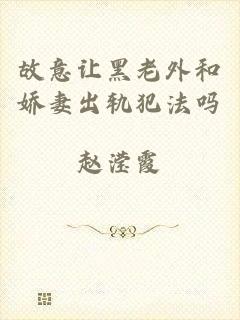 故意让黑老外和
娇妻出轨犯法吗
赵滢霞